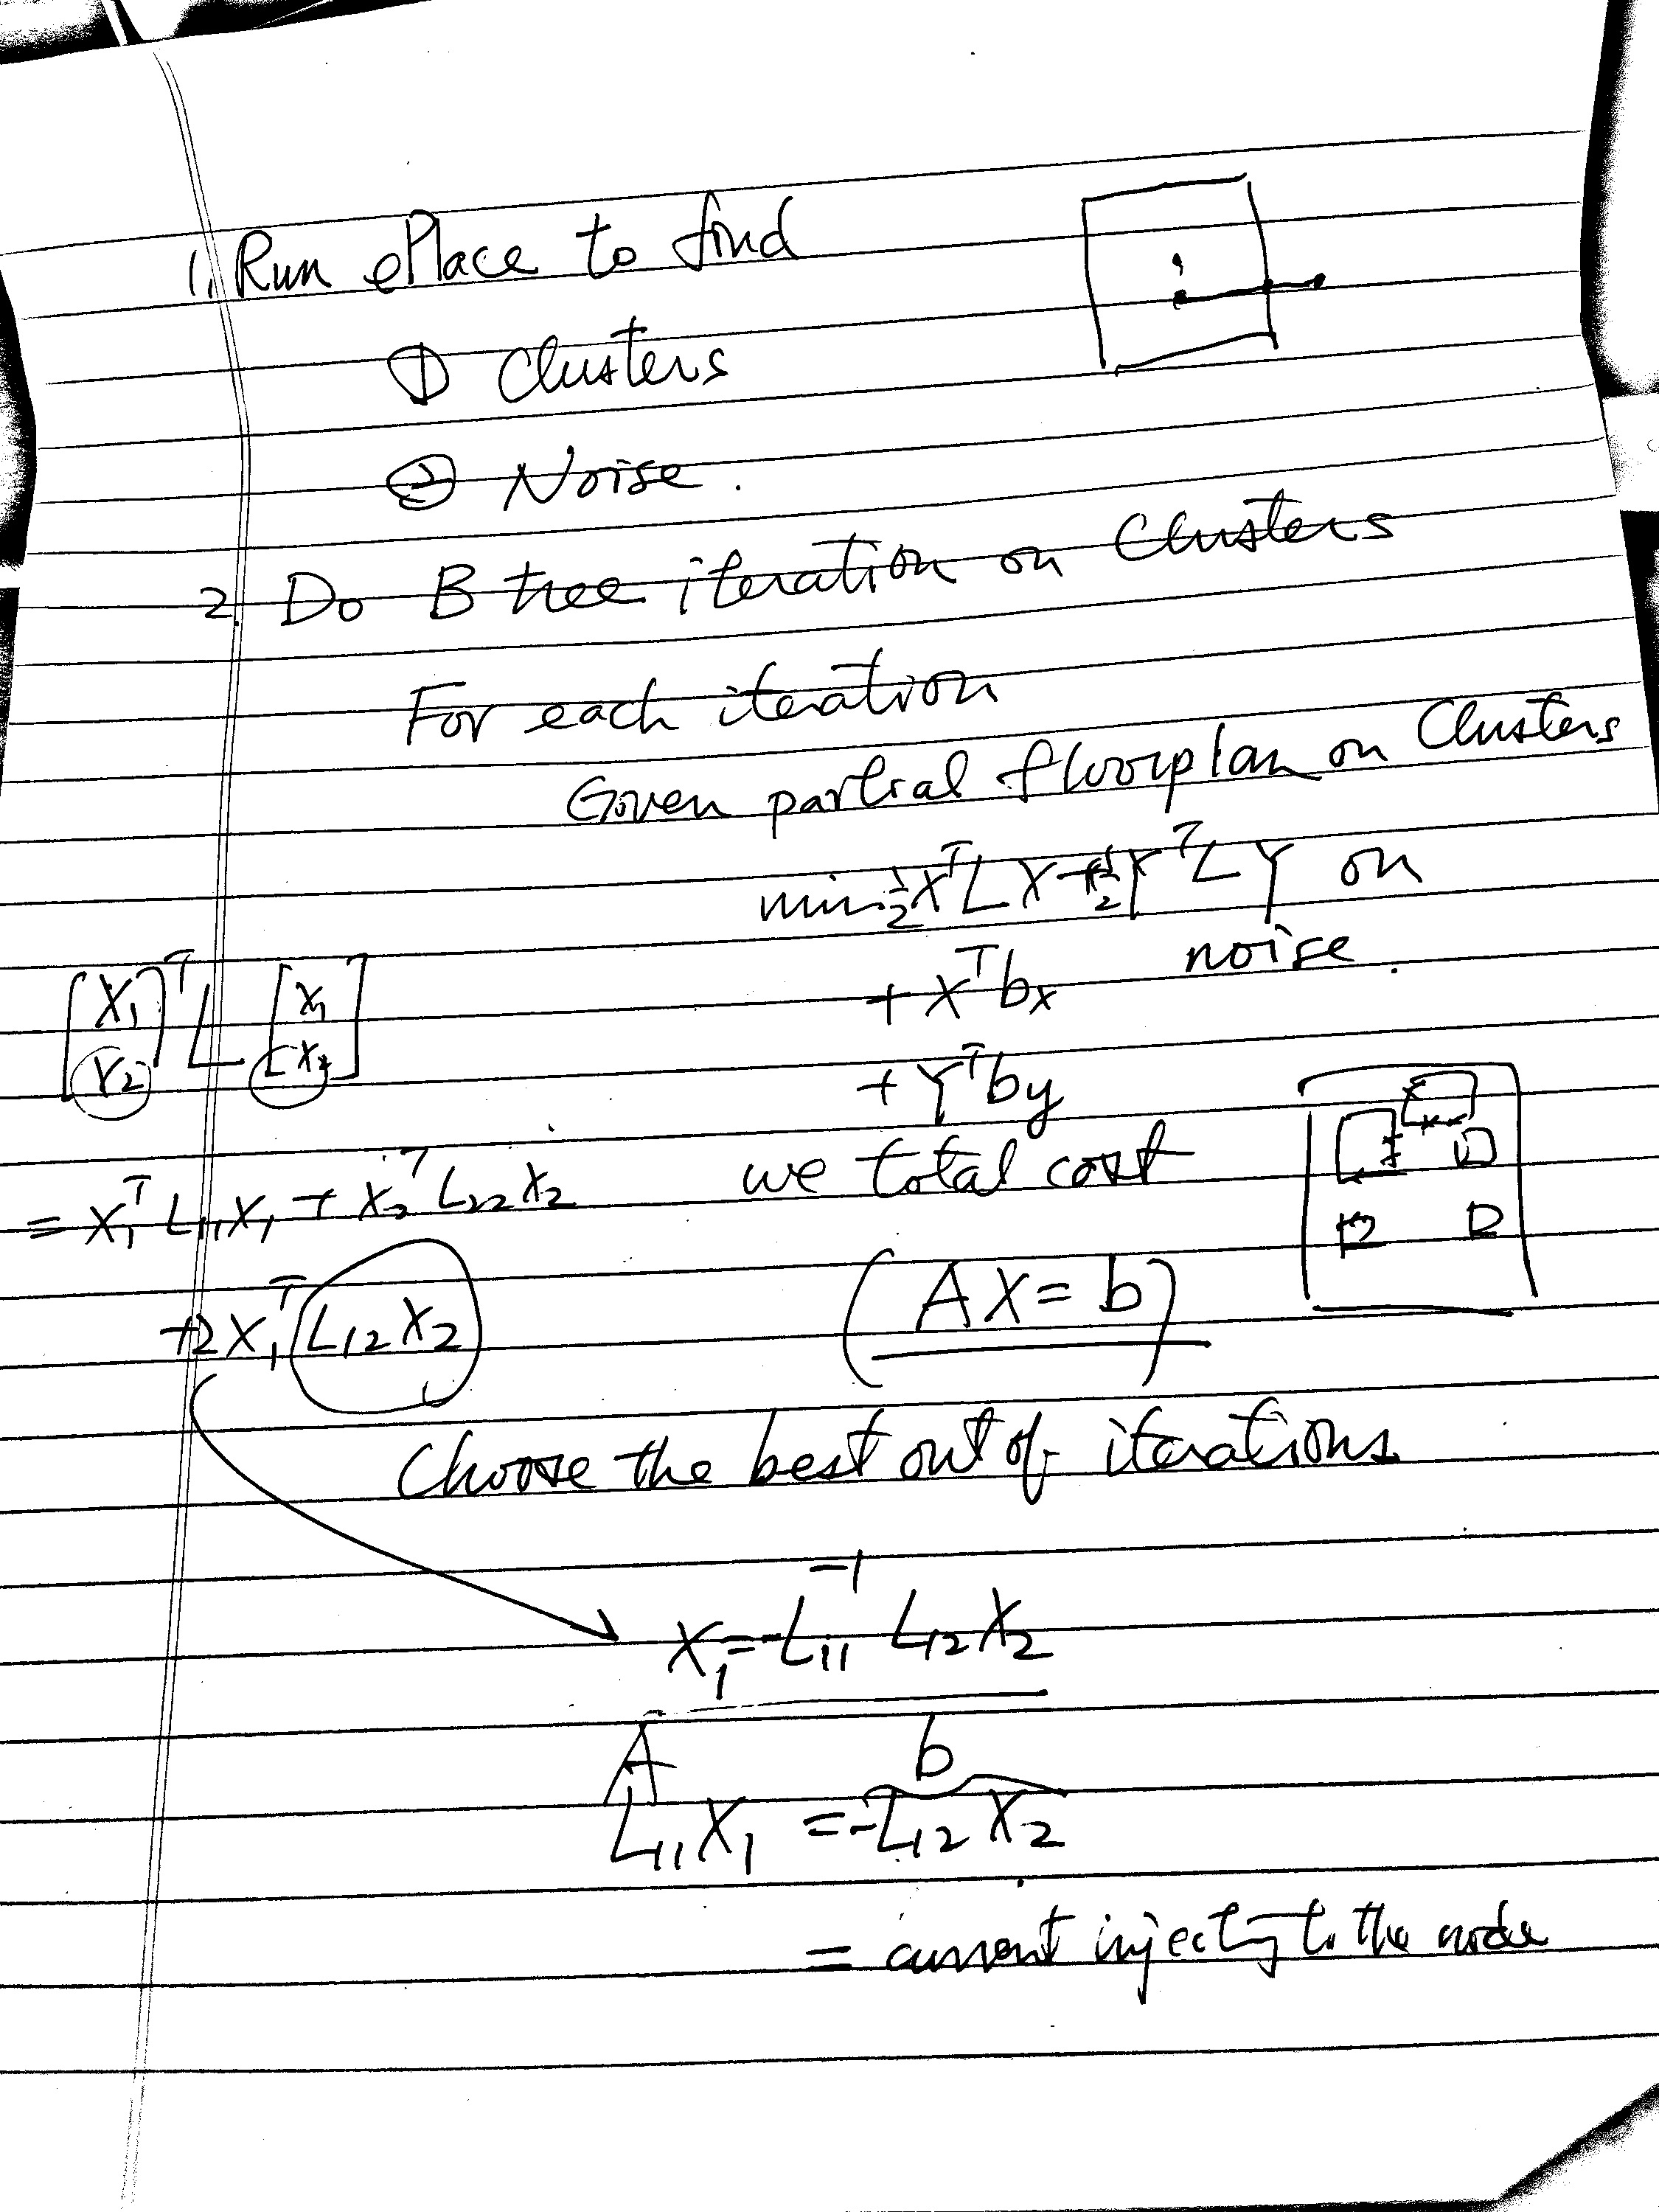 1. Run ePlace to find
① Clusters
② Noise.
2. Do B tree iteration on Clusters
For each iteration
Given partial floorplan on Clusters
min ½XᵀLX+½YᵀLY on
noise.
+ Xᵀbx
+ Yᵀby
[X₁ X₂]ᵀ L [X₁ X₂]
= X₁ᵀL₁₁X₁ + X₂ᵀL₂₂X₂
+2X₁ᵀL₁₂X₂
we total cost
(AX = b)
Choose the best out of iterations
X₁ = -L₁₁⁻¹ L₁₂X₂
A b
L₁₁X₁ = -L₁₂X₂
= current injecting to the node